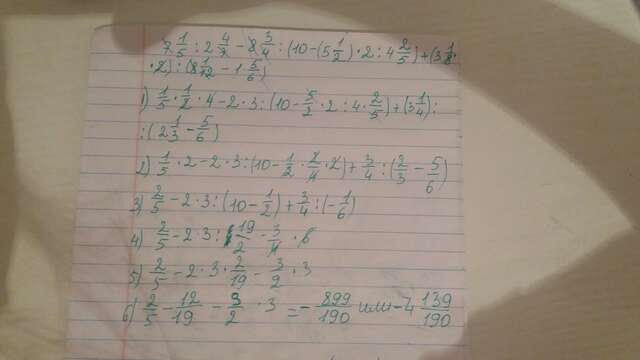 7 1/5 : 2 4/7 - 8 3/4 : (10 - (5 1/2) · 2 : 4 2/5) + (3 1/8 ·
· 2) : (8 1/12 - 1 5/6)
1) 1/5 · 1/2 · 4 - 2 · 3 : (10 - 5/2 · 2 : 4 · 2/5) + (3 1/4) :
: (2 1/3 - 5/6)
2) 1/5 · 2 - 2 · 3 : (10 - 1/2 · 2/4 · 2) + 3/4 : (2/3 - 5/6)
3) 2/5 - 2 · 3 : (10 - 1/2) + 3/4 : (- 1/6)
4) 2/5 - 2 · 3 : 19/2 - 3/4 · 6
5) 2/5 - 2 · 3 · 2/19 - 3/2 · 3
6) 2/5 - 12/19 - 3/2 · 3 = - 899/190 или - 4 139/190